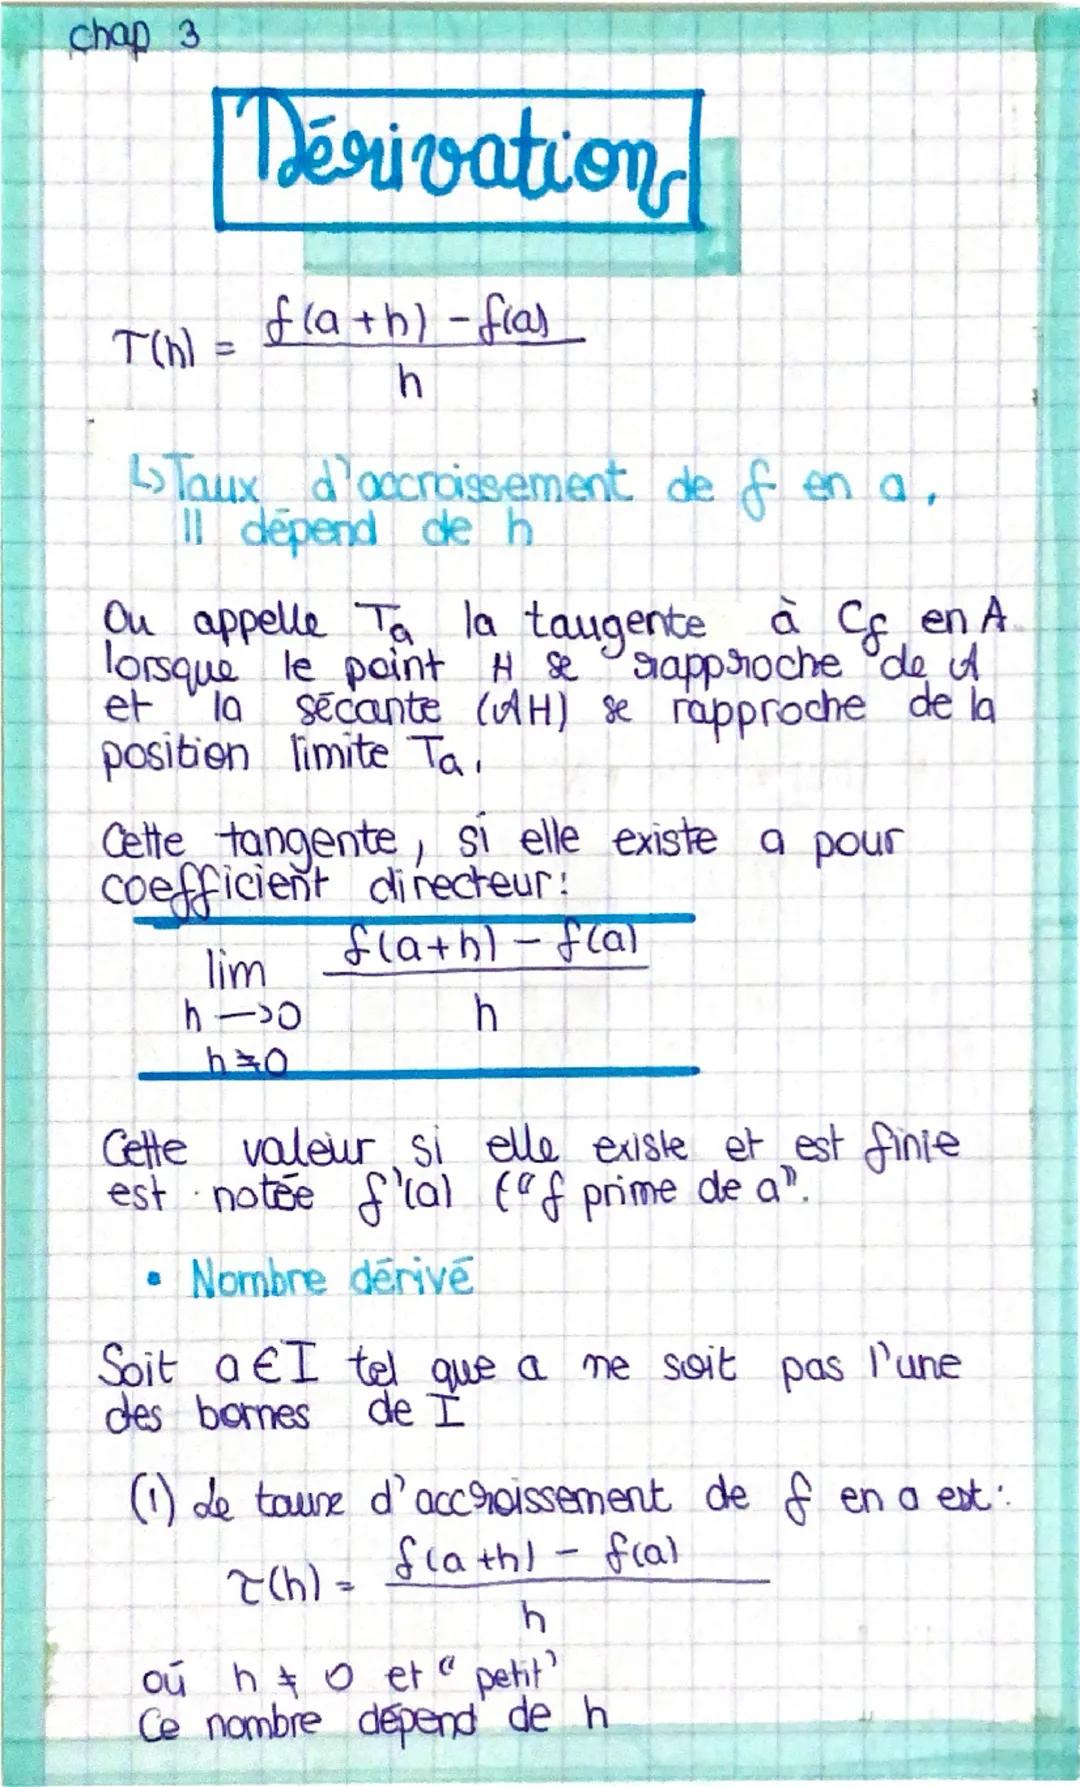 chap 3
Dérivation
T(h) = f(a+h) - f(a)
h
↳ Taux d'accroissement de f en a.
Il dépend de h
On appelle Ta la tangente à Cf en A
lorsque le point H se rapproche de A
et la sécante (AH) se rapproche de la
position limite Ta.
Cette tangente, si elle existe a pour
coefficient directeur:
lim f(a+h) - f(a)
h → 0 h
h ≠ 0
Cette valeur si elle existe et est finie
est notée f'(a) ("f prime de a".
• Nombre dérivé
Soit a ∈ I tel que a ne soit pas l'une
des bornes de I
(1) Le taux d'accroissement de f en a est:
τ(h) = f(a+h) - f(a)
h
où h ≠ 0 et "petit"
Ce nombre dépend de h